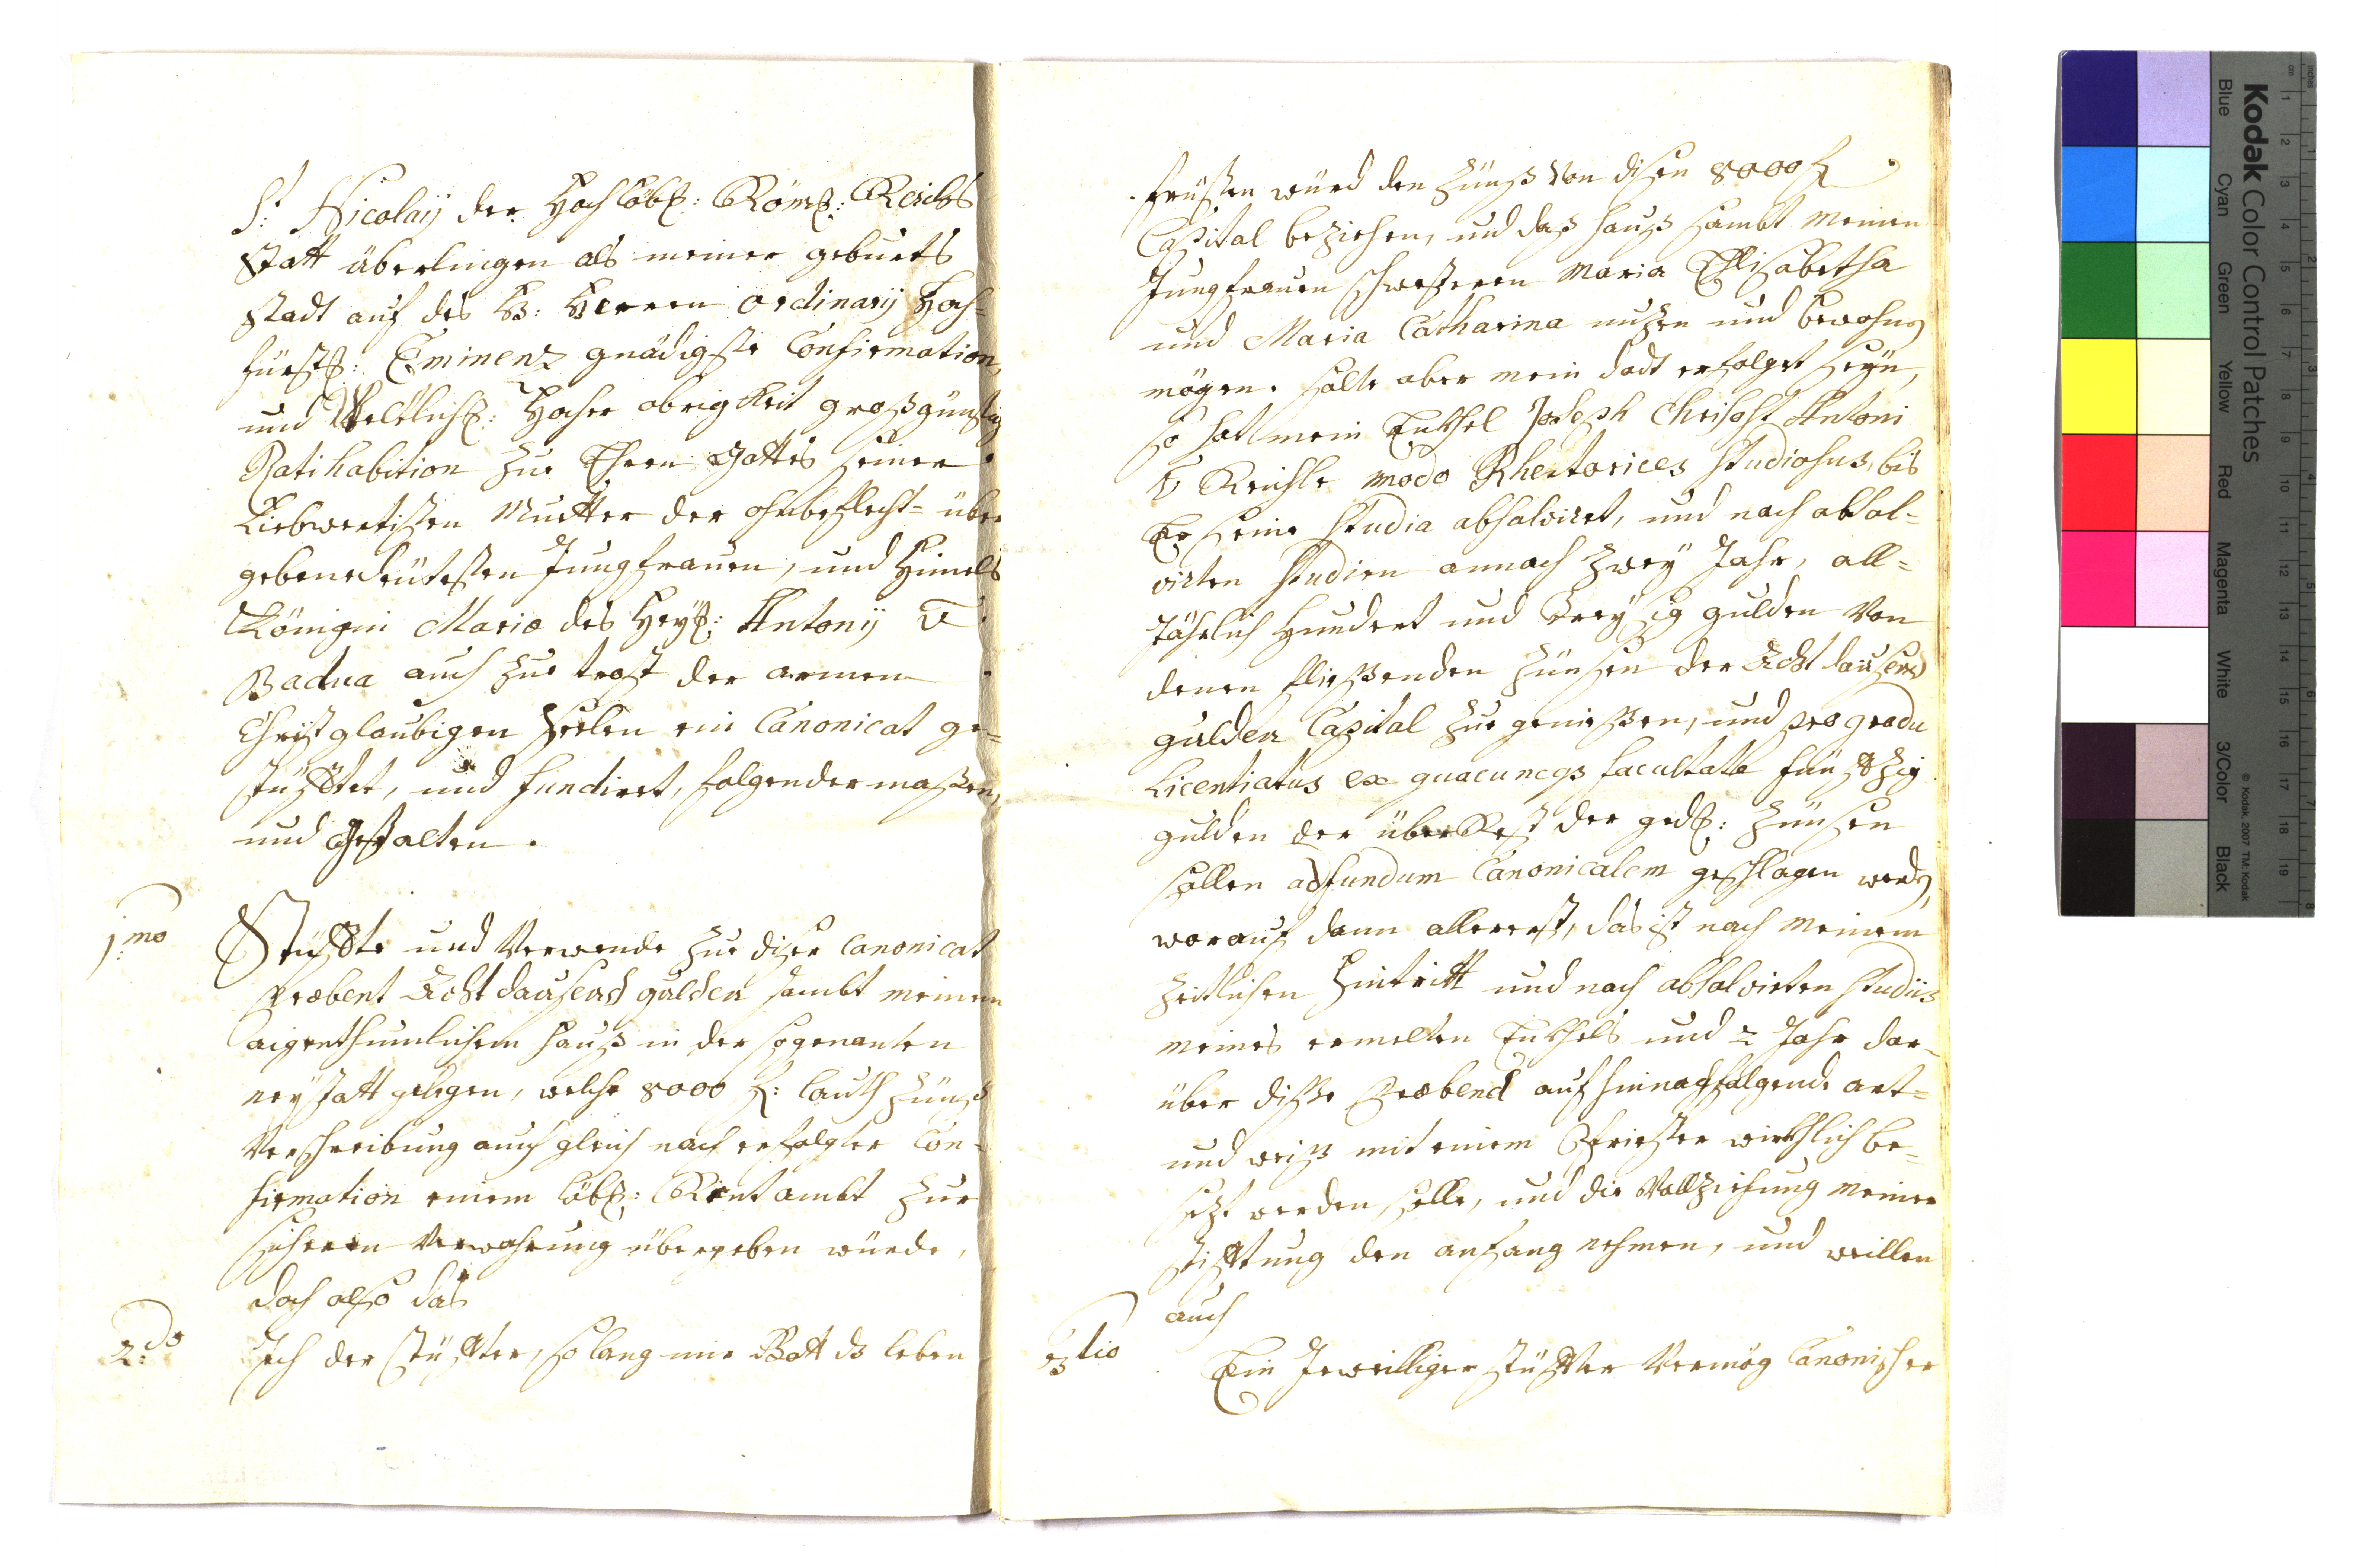 St: Nicolaij der Hochlöbl: Röms: Reichs
Statt überlingen als meiner geburts
stadt auf des H: Herren ordinarij Hoch=
fürstl: Eminenz gnädigste Confirmation,
und Weltlichl: Hocher obrigkeit großgünstig
Ratihabition zur Ehren Gottes seiner
Liebwertisten Muetter der ohnbeflecht= über
gebenedeütesten Jungfrauen, und Himels
Königin Mariæ des Heyl: Antonij v:
Badua auch zue trost der armen
Christglaubigen Seelen ein Canonicat ge=
stüfftet, und fundiert, folgender maßen,
und gestalten.
1:mo
Stüffte und Verwende zue diser Canonicat
Præbent Acht dausend gulden sambt meinem
aigenthumlichem hauß in der sogenanten
neystatt gelegen, welche 8000 fl: lauth zünß
Verschreibung auch gleich nach erfolgter Con=
firmation einem löbl: Rentambt zur
sicheren Verwahrung übergeben würde,
doch also das
2:do
Ich der Stüffter, so lang mir Gott ds leben
fristen würd den zünß von disen 8000 fl
Capital beziehen, und das hauß sambt meinen
Jungfrauen schwesteren Maria Elisabetha
und Maria Catharina nuzen und bewohnen
mögen. solte aber mein dodt erfolget seyn,
so hat mein Enkhel Joseph Chrisost Antoni
v Reichle modo Rhetorices Studiosus, bis
Er seine Studia absolviret, und nach absol=
virten Studien annoch zwey Jahr, all=
Jährlich hundert und dreysig gulden von
denen fließenden zünsen der Acht dausend
gulden Capital zue genießen, und pro gradu
Licentiatus ex quacunqs facultate fünffzig
gulden der überRest der gedl: zünsen
sollen ad fundum Canonicalem geschlagen werden,
worauf dann allererst, das ist nach meinem
zeitlichen hintritt und nach absolvirten Studiis
meines ermelten Enkhels und 2 Jahr dar=
über dise Præbend auf hinnachfolgende art=
und weiß mit einem Priester würkhlich be=
sezt werden solle, und die Vollziehung meiner
stifftung den anfang nehmen, und weillen
auch
3tio
Ein Jeweilliger stüffter Vermög Canonischer